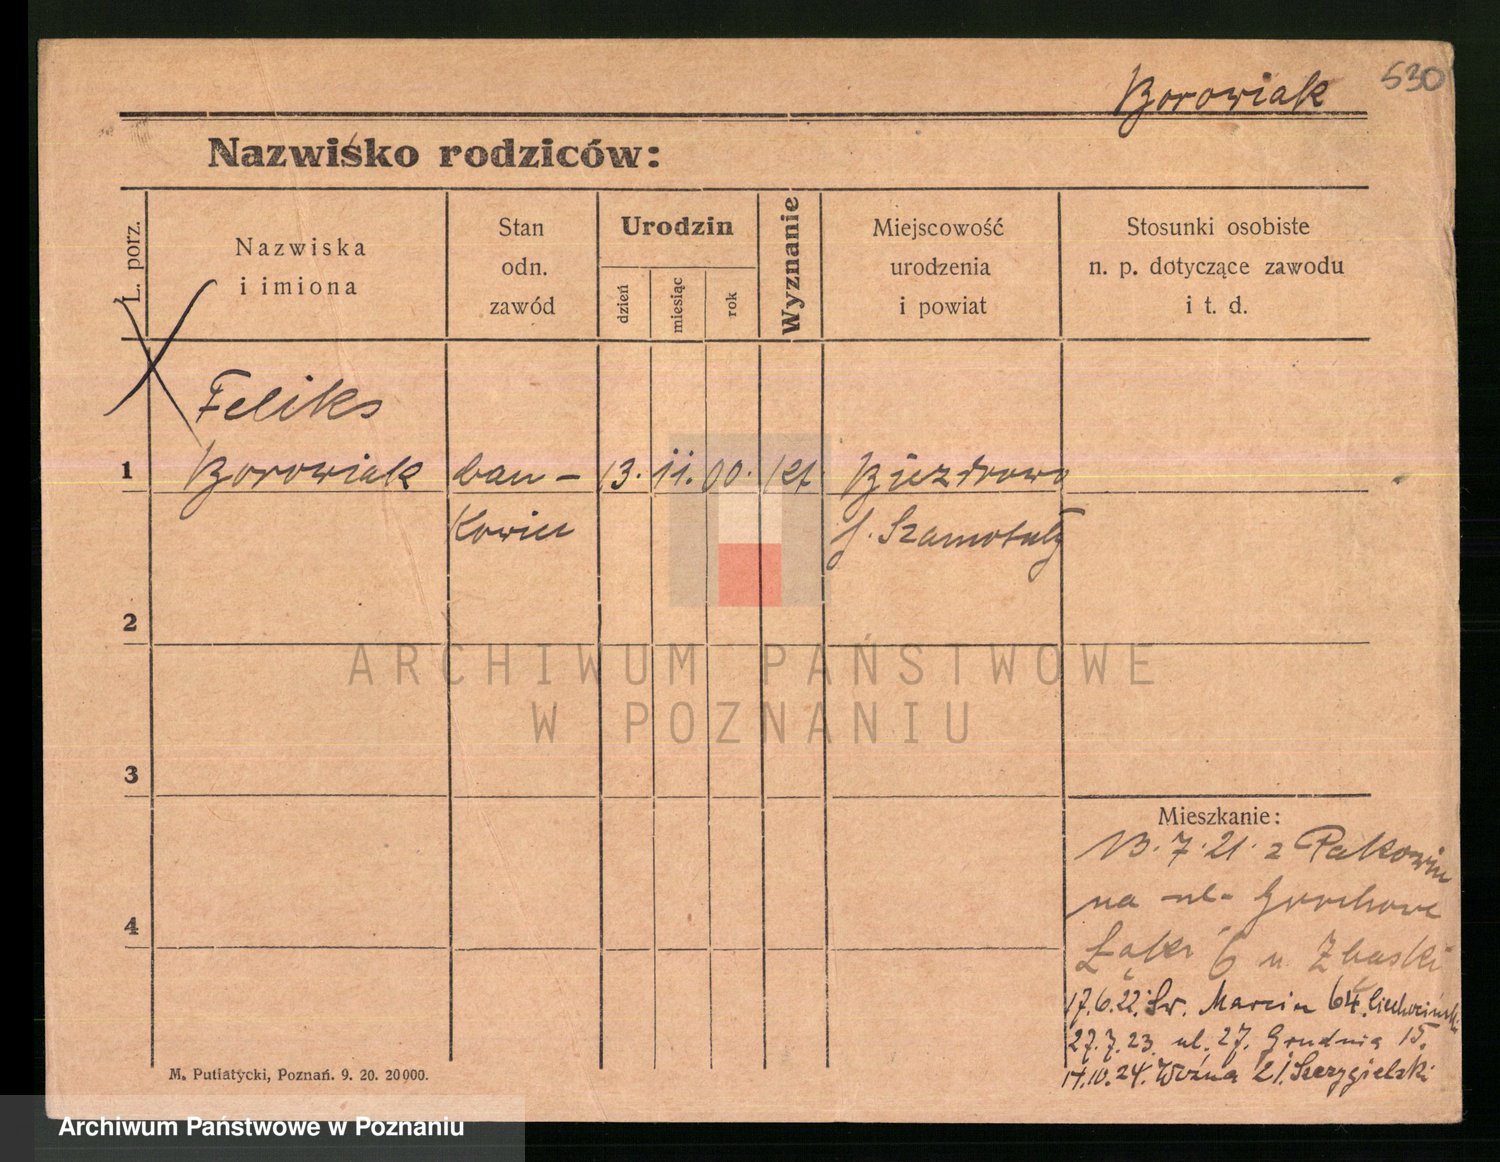 Borowiak 530
Nazwisko rodziców:
L. porz.
Nazwiska
i imiona
Stan
odn.
zawód
Urodzin
dzień
miesiąc
rok
Wyznanie
Miejscowość
urodzenia
i powiat
Stosunki osobiste
n. p. dotyczące zawodu
i t. d.
Feliks
1 Borowiak ban- 13. 11. 00. kt.
kowiec Szamotuły
2
3
4
ARCHIWUM PAŃSTWOWE
W POZNANIU
Mieszkanie:
13. 7. 21. z
na ul.
Łąki 6 u. Zbaski
17.6.22. Św. Marcin 64.
27.7.23. ul. 27. Grudnia 15.
17.10.24. Woźna 21. Szczygielski
M. Putiatycki, Poznań. 9. 20. 20000.
Archiwum Państwowe w Poznaniu